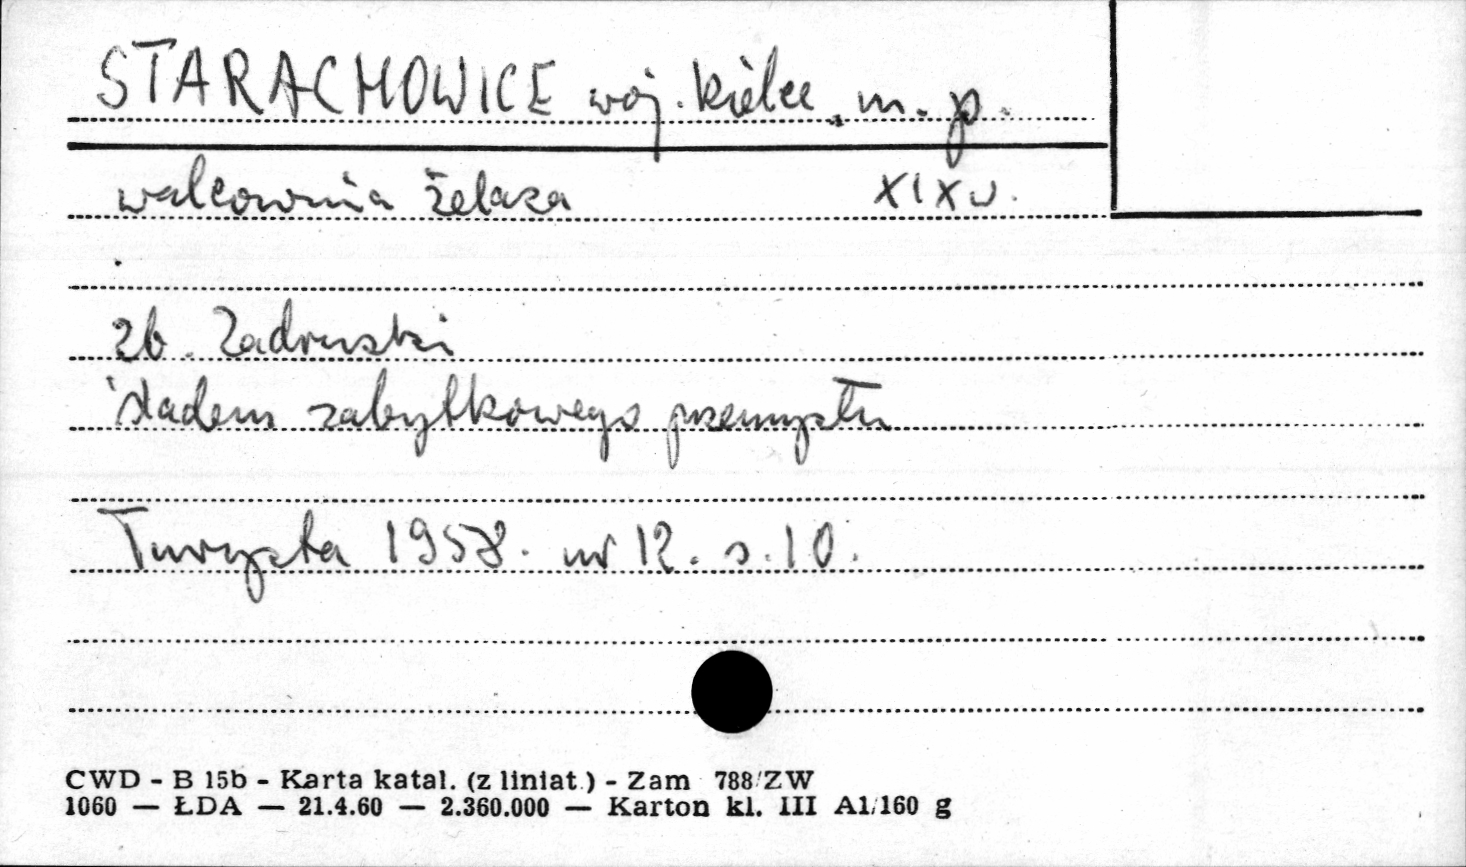 STARACHOWICE woj. Kielce, m. p.
walcownia żelaza XIX w.
Zb. Zadruski
śladem zabytkowego przemysłu
Turysta 1958. nr 12. s. 10.
CWD - B 15b - Karta katal. (z liniat.) - Zam 788/ZW
1060 — ŁDA — 21.4.60 — 2.360.000 — Karton kl. III A1/160 g